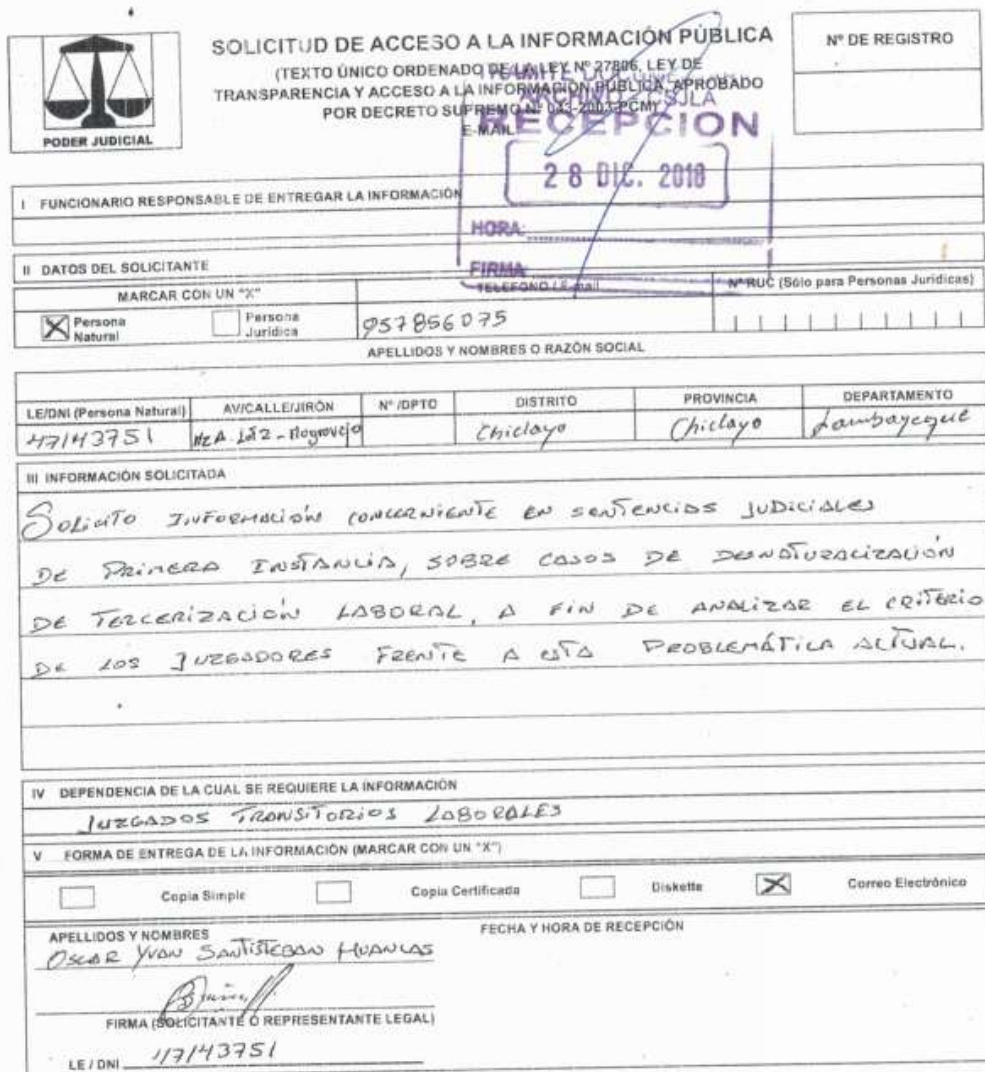 SOLICITUD DE ACCESO A LA INFORMACIÓN PÚBLICA
Nº DE REGISTRO
(TEXTO ÚNICO ORDENADO DE LA LEY Nº 27806, LEY DE
TRANSPARENCIA Y ACCESO A LA INFORMACIÓN PÚBLICA, APROBADO
POR DECRETO SUPREMO Nº 043-2003-PCM)
E-MAIL
PODER JUDICIAL
RECEPCION
28 DIC. 2018
HORA:
FIRMA
I FUNCIONARIO RESPONSABLE DE ENTREGAR LA INFORMACIÓN
II DATOS DEL SOLICITANTE
MARCAR CON UN "X"
TELEFONO / E-mail
Nº RUC (Sólo para Personas Jurídicas)
X Persona Natural
Persona Jurídica
957856075
APELLIDOS Y NOMBRES O RAZÓN SOCIAL
LE/DNI (Persona Natural) AV/CALLE/JIRÓN Nº /DPTO DISTRITO PROVINCIA DEPARTAMENTO
47143751 Mz A Chiclayo Chiclayo Lambayeque
III INFORMACIÓN SOLICITADA
SOLICITO INFORMACIÓN CONCERNIENTE EN SENTENCIAS JUDICIALES
DE PRIMERA INSTANCIA, SOBRE CASOS DE DESNATURALIZACIÓN
DE TERCERIZACIÓN LABORAL, A FIN DE ANALIZAR EL CRITERIO
DE LOS JUZGADORES FRENTE A ESTA PROBLEMÁTICA ACTUAL.
IV DEPENDENCIA DE LA CUAL SE REQUIERE LA INFORMACIÓN
JUZGADOS TRANSITORIOS LABORALES
V FORMA DE ENTREGA DE LA INFORMACIÓN (MARCAR CON UN "X")
Copia Simple Copia Certificada Diskette X Correo Electrónico
APELLIDOS Y NOMBRES
FECHA Y HORA DE RECEPCIÓN
OSCAR YVAN SANTISTEBAN HUANCAS
FIRMA (SOLICITANTE O REPRESENTANTE LEGAL)
LE / DNI 47143751